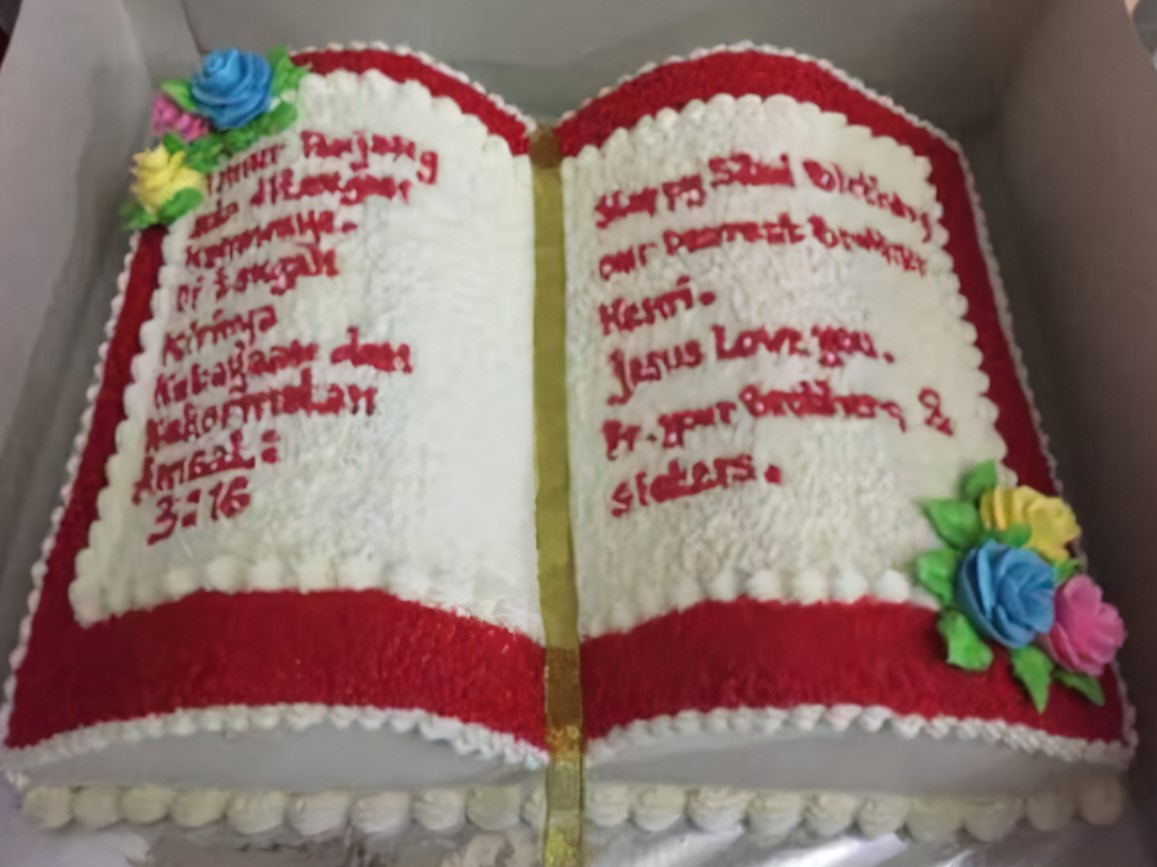 Umur Panjang
ada ditangan
kanannya.
di tangan
kirinya
Kekayaan dan
Kehormatan
Amsal:
3:16
Happy 52nd Birthday
our Dearest Brother
Henri.
Jesus Love you.
Fr. your Brothers &
sisters.